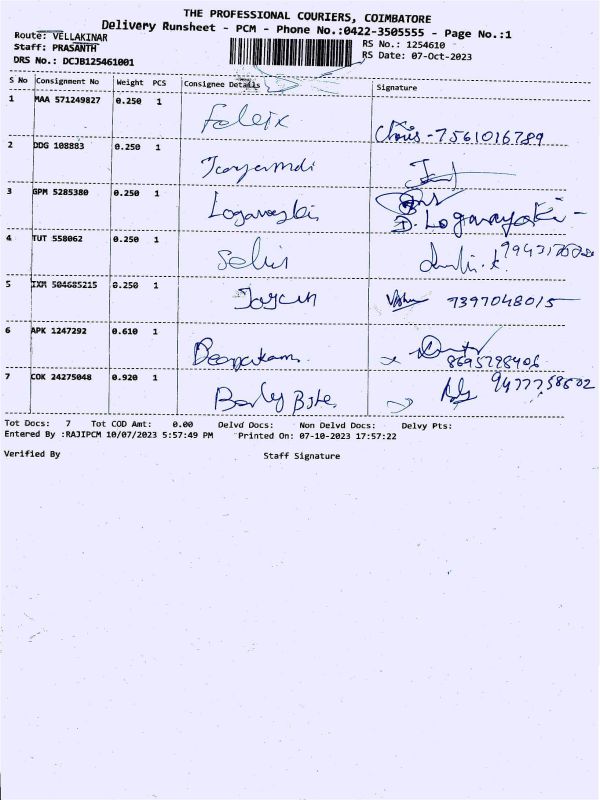 THE PROFESSIONAL COURIERS, COIMBATORE
Delivery Runsheet - PCM - Phone No.:0422-3505555 - Page No.:1
Route: VELLAKINAR
RS No.: 1254610
Staff: PRASANTH
RS Date: 07-Oct-2023
DRS No.: DCJB125461001
S No Consignment No Weight PCS Consignee Details Signature
1 MAA 571249827 0.250 1 Feleix
Chris - 7561016789
2 DDG 108883 0.250 1
3 GPM 5285380 0.250 1
D. Loganayaki
4 TUT 558062 0.250 1 Selvin
5 IXM 504685215 0.250 1 7397048015
6 APK 1247292 0.610 1
8695728406
7 COK 24275048 0.920 1
Tot Docs: 7 Tot COD Amt: 0.00 Delvd Docs: Non Delvd Docs: Delvy Pts:
Entered By :RAJIPCM 10/07/2023 5:57:49 PM Printed On: 07-10-2023 17:57:22
Verified By Staff Signature